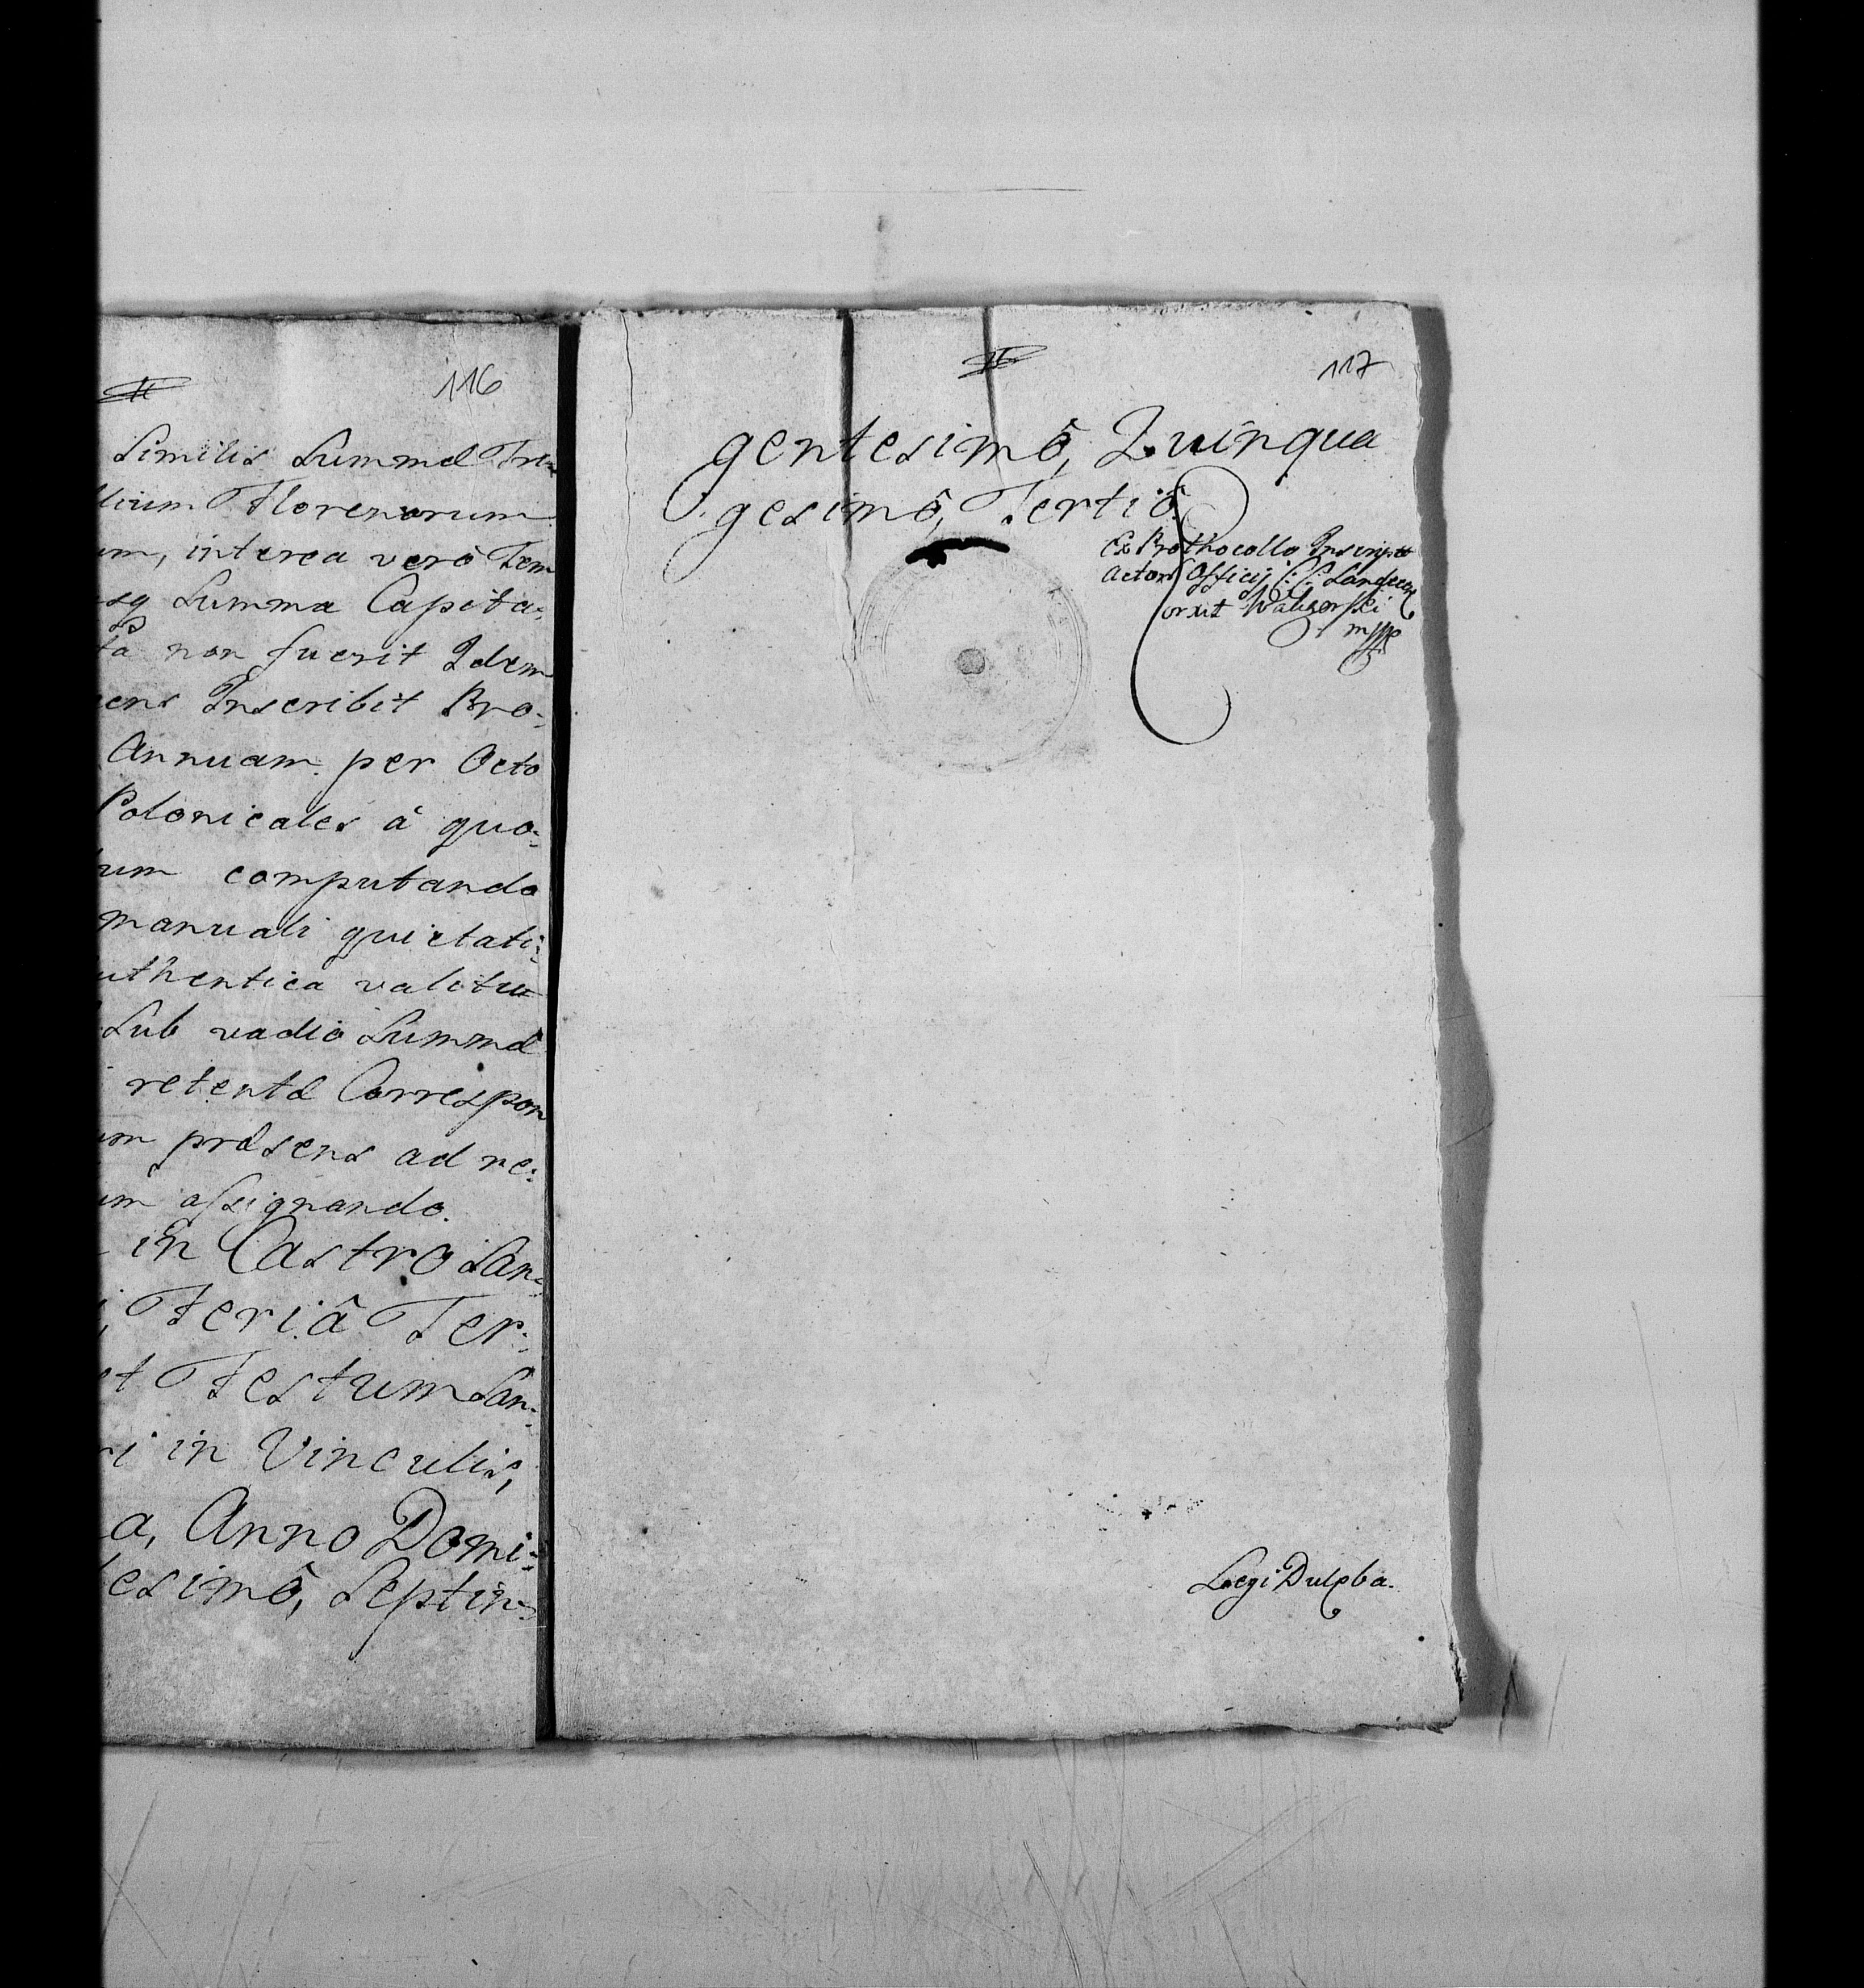 116
Similis Summæ Tri=
lium Florenorum
um, interea verò Tem
sq Summa Capita=
ta non fuerit Idem
ens Inscribit Pro=
Annuam per Octo
Polonicales à quo=
um computando
manuali quietati=
uthentica valitu
Sub vadio Summæ
retentæ Correspon
um præsens ad re=
um assignando.
in Castro San=
Feriâ Ter=
t Festum San=
ri in Vinculis,
a, Anno Domi=
esimô, Septin=
117
gentesimô, Quinqua
gesimô, Tertiô
Ex Prothocollo Inscript
Actor Officij C: C: Sandecen
orxit Walizorski
mpp
Legi Dulęba.